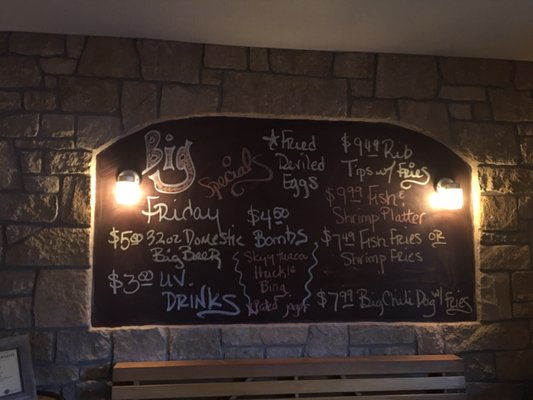 Big
Specials
Friday
$5.00 32oz Domestic
Big Beer
$3.00 U.V.
Drinks
☆ Fried
Deviled
Eggs
$4.50
Bombs
Skyy
Huckle
Bing
$9.49 Rib
Tips w/ Fries
$9.99 Fish &
Shrimp Platter
$7.49 Fish Fries or
Shrimp Fries
$7.99 Big Chili Dog w/ Fries